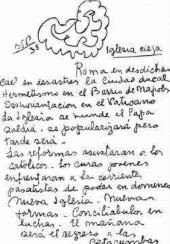 Iglesia cieja
Roma en desdichas
Cae en desastres la ciudad ducal
Hermetismo en el Barrio de Napoles
Desorientacion en el Vaticano
La Iglesia se hunde el Papa
saldrá. se popularizará pero
tarde será.
Las reformas asustaran a los
católicos. Los curas jovenes
enfrentaran a la corriente
pasatista de poder en dominus
Nueva Iglesia. Nuevas
formas. Conciliabulos en
luchas. El mañana
será el regreso a las
catacumbas